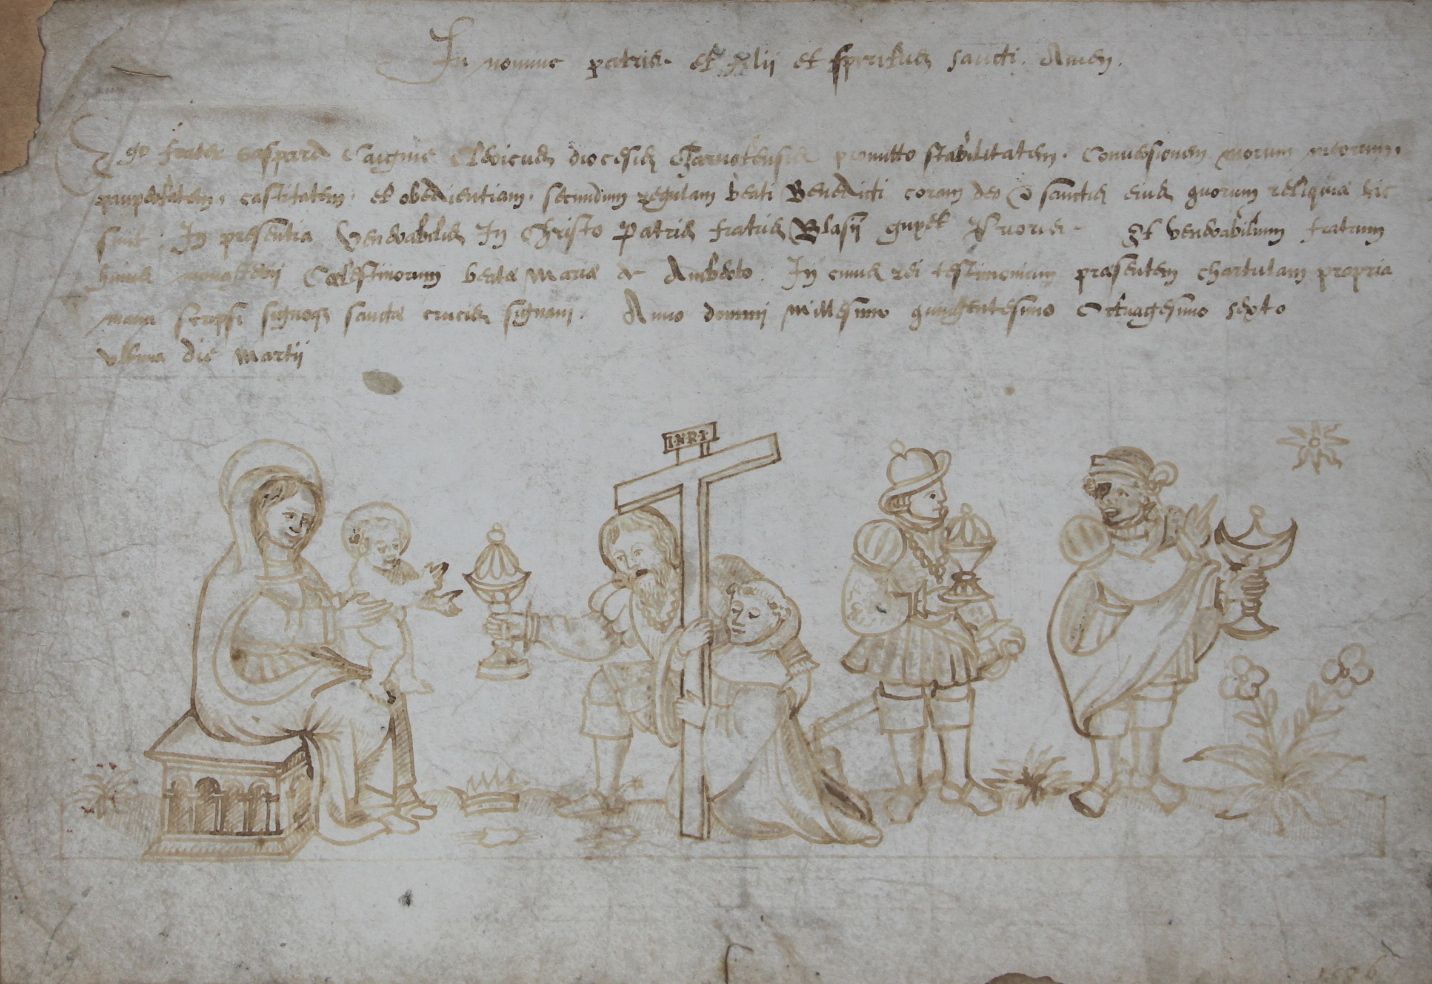 In nomine patris et filii et spiritus sancti. Amen.
Ego frater Gaspard Caigne Clericus diocesis Carnotensis promitto stabilitatem. Conversionem morum meorum.
paupertatem. castitatem. et obedientiam. secundum regulam beati Benedicti coram deo & sanctis eius quorum reliquiæ hic
sunt. In presentia Venerabilis In Christo Patris fratris Blasij prioris. Et venerabilium fratrum
huius monasterij Cœlestinorum beatæ Mariæ de Amberto. In cuius rei testimonium præsentem chartulam propria
manu scripsi signoq; sanctæ crucis signavi. Anno domini millesimo quingentesimo Octuagesimo sexto
ultima die Martij
I.N.R.I.